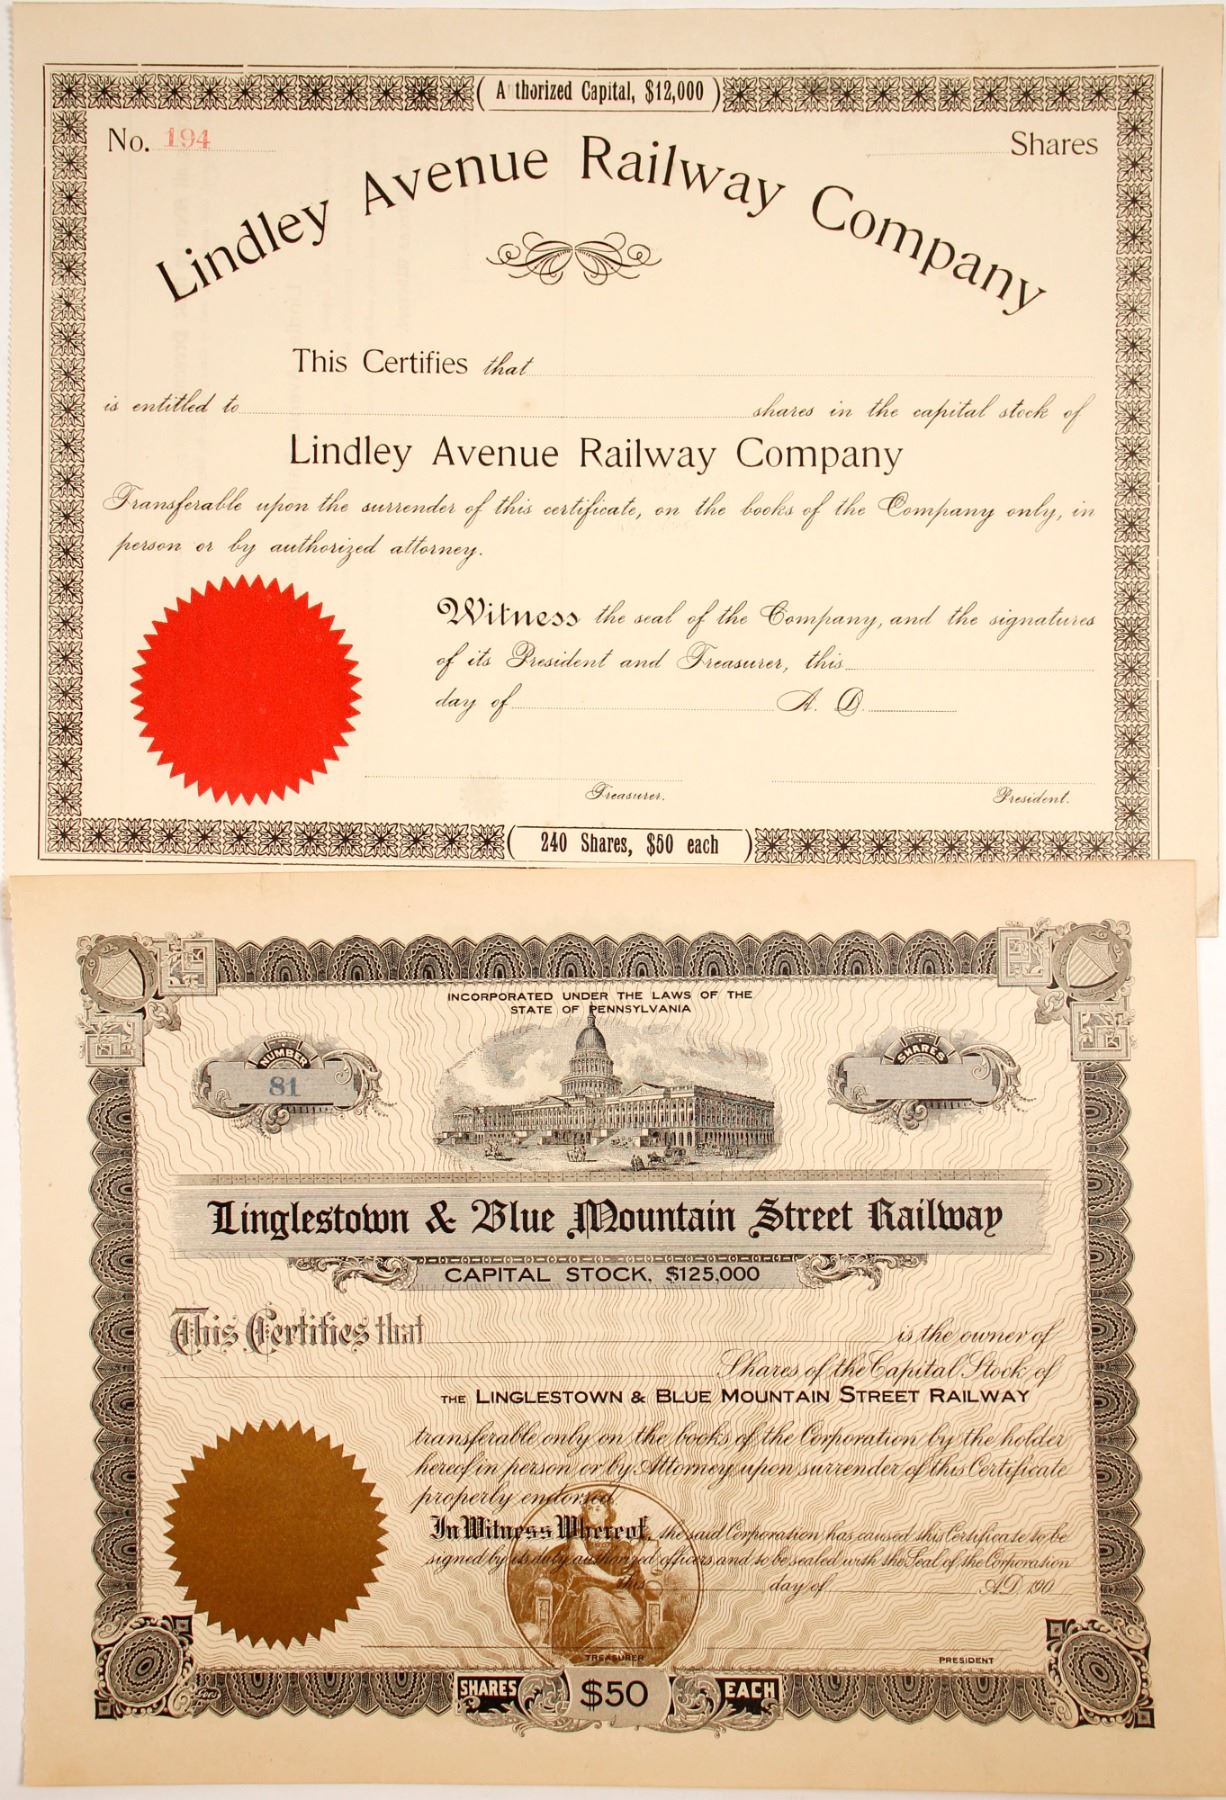 A thorized Capital, $12,000
No. 194
Shares
Lindley Avenue Railway Company
This Certifies that
is entitled to shares in the capital stock of
Lindley Avenue Railway Company
Transferable upon the surrender of this certificate, on the books of the Company only, in
person or by authorized attorney.
Witness the seal of the Company, and the signatures
of its President and Treasurer, this
day of A. D.
Treasurer. President.
240 Shares, $50 each
INCORPORATED UNDER THE LAWS OF THE
STATE OF PENNSYLVANIA
NUMBER
81
SHARES
Linglestown & Blue Mountain Street Railway
CAPITAL STOCK, $125,000
This Certifies that is the owner of
Shares of the Capital Stock of
THE LINGLESTOWN & BLUE MOUNTAIN STREET RAILWAY
transferable only on the books of the Corporation by the holder
hereof in person or by Attorney upon surrender of this Certificate
properly endorsed.
In Witness Whereof, the said Corporation has caused this Certificate to be
signed by its duly authorized officers and to be sealed with the Seal of the Corporation
this day of A.D. 190
TREASURER PRESIDENT
SHARES $50 EACH